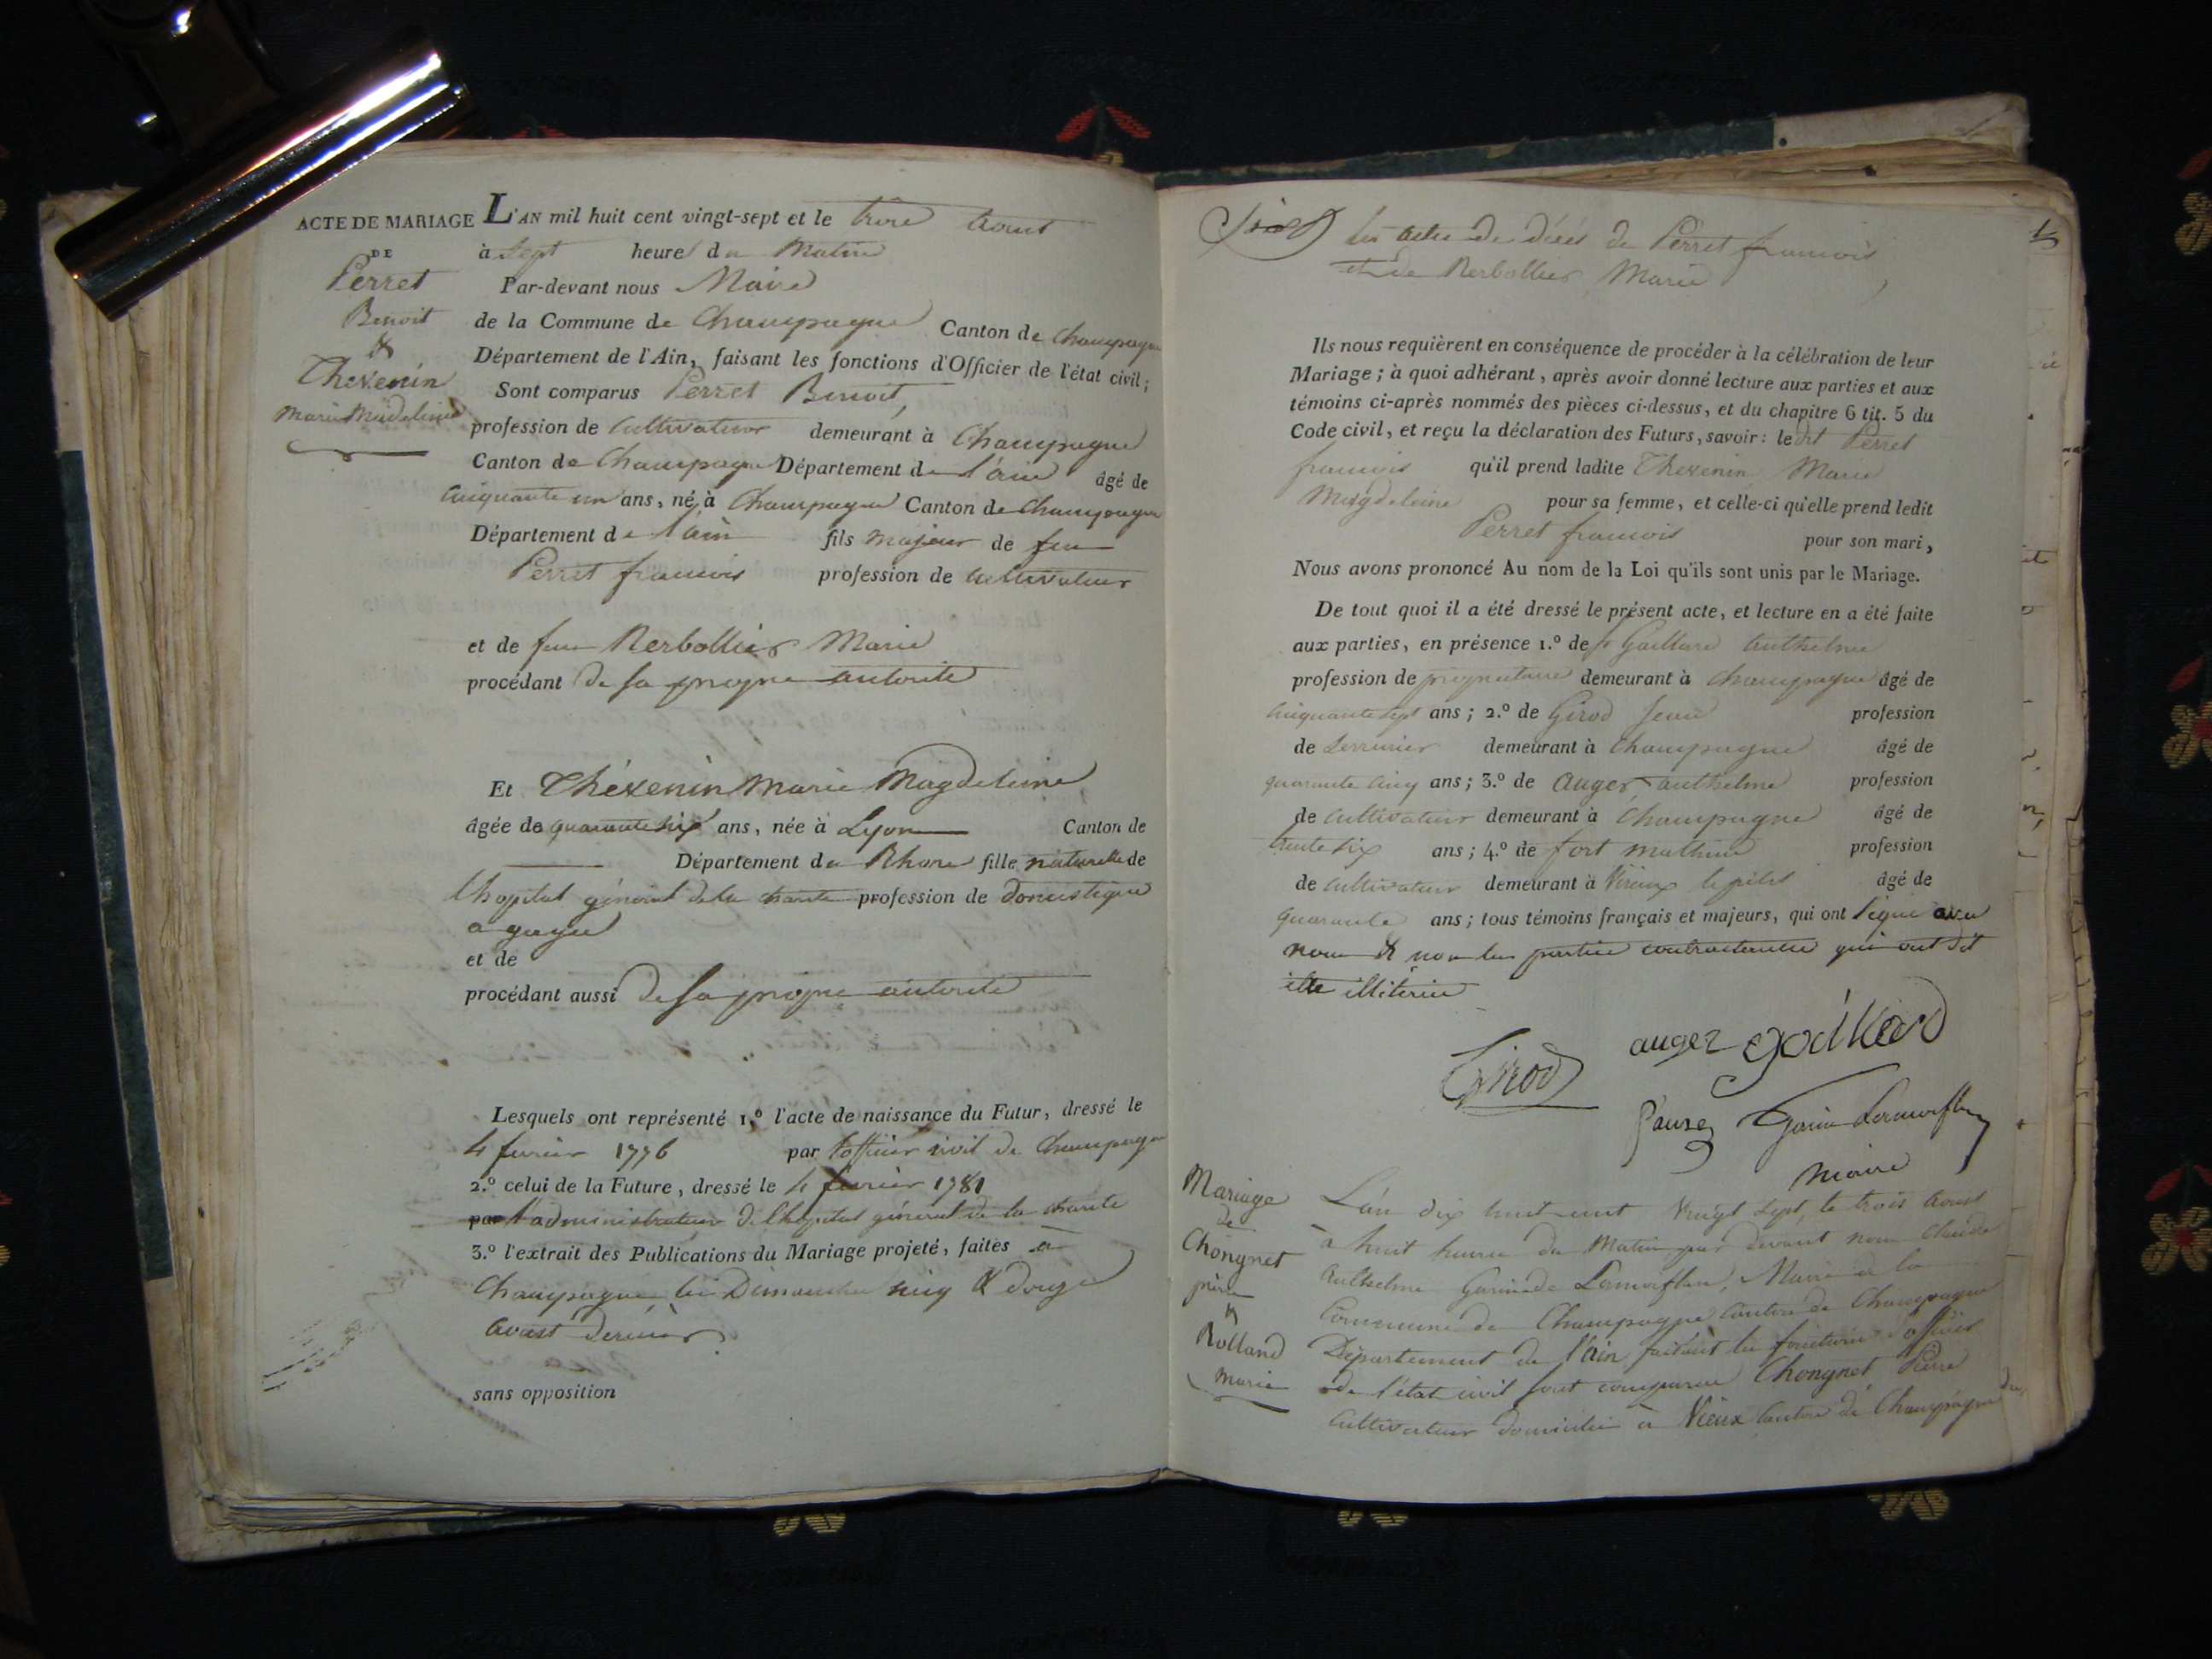 ACTE DE MARIAGE
DE
Perret
Benoit
&
Thevenin
Marie Madeleine
L'AN mil huit cent vingt-sept et le trois Aout
à Sept heures du Matin
Par-devant nous Maire
de la Commune de Champagne Canton de Champagne
Département de l'Ain, faisant les fonctions d'Officier de l'état civil;
Sont comparus Perret Benoit,
profession de Cultivateur demeurant à Champagne
Canton de Champagne Département de l'ain âgé de
Cinquante un ans, né à Champagne Canton de Champagne
Département de l'ain fils majeur de feu
Perret francois profession de Cultivateur
et de feue Rerbollier Marie
procédant de sa propre autorité
Et Thévenin Marie Magdeleine
âgée de quarante six ans, née à Lyon Canton de
Département du Rhone fille naturelle de
l'hopital général de la charité profession de domestique
a gage
et de
procédant aussi de sa propre autorité
Lesquels ont représenté 1.º l'acte de naissance du Futur, dressé le
4 fevrier 1776 par l'officier civil de Champagne
2.º celui de la Future, dressé le 4 fevrier 1781
par l'administrateur de l'hopital général de la charité
3.º l'extrait des Publications du Mariage projeté, faites à
Champagne les Dimanches cinq & douze
Aoust dernier
sans opposition
les actes de décès de Perret francois
et de Rerbollier Marie
Ils nous requièrent en conséquence de procéder à la célébration de leur
Mariage; à quoi adhérant, après avoir donné lecture aux parties et aux
témoins ci-après nommés des pièces ci-dessus, et du chapitre 6 tit. 5 du
Code civil, et reçu la déclaration des Futurs, savoir: le dit Perret
francois qu'il prend ladite Thevenin Marie
Magdeleine pour sa femme, et celle-ci qu'elle prend ledit
Perret francois pour son mari,
Nous avons prononcé Au nom de la Loi qu'ils sont unis par le Mariage.
De tout quoi il a été dressé le présent acte, et lecture en a été faite
aux parties, en présence 1.º de Sr Gaillard Anthelme
profession de propriétaire demeurant à Champagne âgé de
Cinquante sept ans; 2.º de Girod Jean profession
de Serrurier demeurant à Champagne âgé de
quarante cinq ans; 3.º de Auger anthelme profession
de Cultivateur demeurant à Champagne âgé de
trente six ans; 4.º de fort mathieu profession
de Cultivateur demeurant à Virieux le petit âgé de
quarante ans; tous témoins français et majeurs, qui ont signé avec
nous & non les parties contractantes qui ont dit
être illiterées
auger gaillard
Girod
Garin Lamorflan
Maire
Mariage
de
Chongnet
pierre
&
Rolland
Marie
L'an dix huit cent vingt sept, le trois Aoust
à huit heures du Matin par devant nous Claude
Anthelme Garin de Lamorflan, Maire de la
Commune de Champagne Canton de Champagne
Département de l'ain faisant les fonctions d'officier
de l'état civil sont comparus Chongnet Pierre
Cultivateur domicilié à Vieux Canton de Champagne